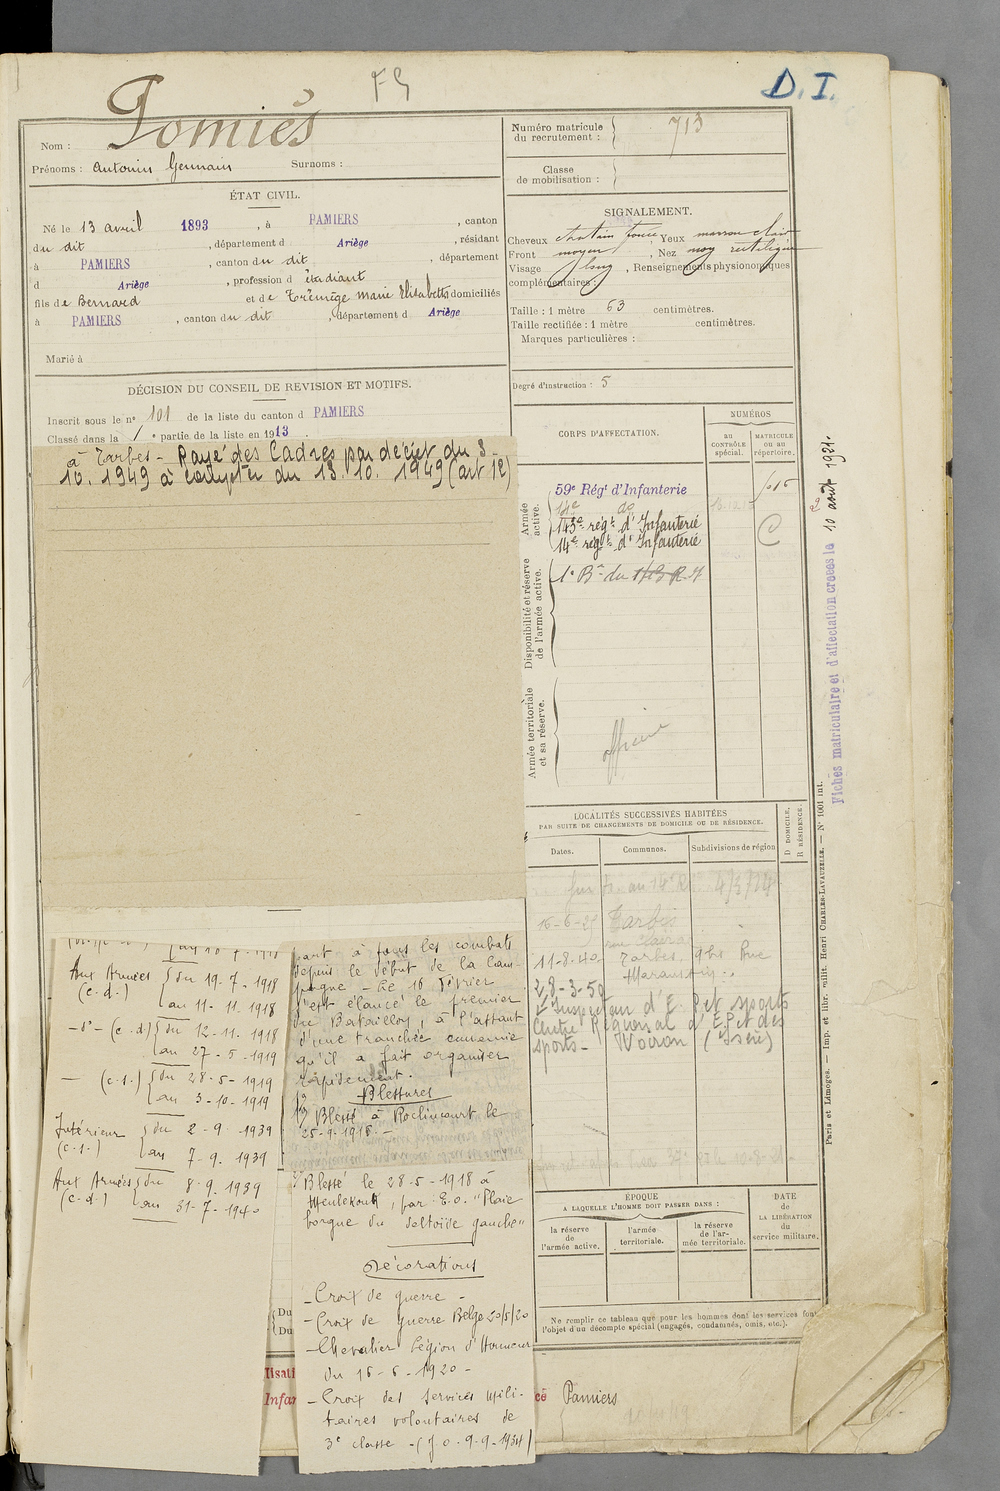 FG
D. I.
Nom : Pomiès
Prénoms : Antonin Germain Surnoms :
ÉTAT CIVIL.
Né le 13 avril 1893, à PAMIERS, canton
du dit, département d Ariège, résidant
à PAMIERS, canton du dit, département
d Ariège, profession d étudiant
fils de Bernard et de Trémège Marie Elisabeth domiciliés
à PAMIERS, canton du dit, département d Ariège
Marié à
DÉCISION DU CONSEIL DE REVISION ET MOTIFS.
Inscrit sous le n° 101 de la liste du canton d PAMIERS
Classé dans la 1 e partie de la liste en 1913
à Tarbes - Rayé des Cadres par décret du 3-
10. 1949 à compter du 13. 10. 1949 (art 12)
Numéro matricule
du recrutement : 713
Classe
de mobilisation :
SIGNALEMENT.
Cheveux chatain foncé, Yeux marron clair
Front moyen, Nez moy rectiligne
Visage long, Renseignements physionomiques
complémentaires :
Taille : 1 mètre 63 centimètres.
Taille rectifiée : 1 mètre centimètres.
Marques particulières :
Degré d'instruction : 5
CORPS D'AFFECTATION.
NUMÉROS
au
CONTRÔLE
spécial.
MATRICULE
ou au
répertoire.
Armée
active.
59e Régt d'Infanterie
14e do
143e regt d'Infanterie
14e regt d'Infanterie
Disponibilité et réserve
de l'armée active.
1e Bn du
Armée territoriale
et sa réserve.
officier
LOCALITÉS SUCCESSIVES HABITÉES
PAR SUITE DE CHANGEMENTS DE DOMICILE OU DE RÉSIDENCE.
Dates. Communes. Subdivisions de région
D DOMICILE,
R RÉSIDENCE.
16-6-25 Tarbes
11-8-40 Tarbes 9 bis Rue
28-3-50
Inspecteur d'E.P et sports
Centre Régional d'E.P et des
sports - Voiron (Isère)
ÉPOQUE
A LAQUELLE L'HOMME DOIT PASSER DANS :
la réserve
de
l'armée active.
l'armée
territoriale.
la réserve
de l'ar-
mée territoriale.
DATE
de
LA LIBÉRATION
du
service militaire.
Ne remplir ce tableau que pour les hommes dont les services font
l'objet d'un décompte spécial (engagés, condamnés, omis, etc.).
Pamiers
Aux Armées (c.d.) du 19-7-1918
au 11-11-1918
- d° - (c.d) du 12-11-1918
au 27-5-1919
- (c.s.) du 28-5-1919
au 3-10-1919
Intérieur (c.s.) du 2-9-1939
au 7-9-1939
Aux Armées (c-d.) du 8-9-1939
au 31-7-1940
part à tous les combats
depuis le début de la Cam-
pagne - Le 16 février
s'est élancé le premier
du Bataillon, à l'assaut
d'une tranchée ennemie
qu'il a fait organiser
rapidement.
Blessures
1) Blessé à Roclincourt le
25-9-1915 -
Blessé le 28-5-1918 à
Meulekouk, par E.O. "Plaie
borgne du deltoïde gauche"
Décorations
- Croix de guerre -
- Croix de guerre Belge 20/5/20
- Chevalier Légion d'Honneur
du 16-6-1920 -
- Croix des services mili-
taires volontaires de
3e classe - (J O. 9-9-1934)
Du
Du
Fiches matriculaire et d'affectation créées le 10 août 1921.
Paris et Limoges. — Imp. et libr. milit. Henri CHARLES-LAVAUZELLE. — N° 1001 int.